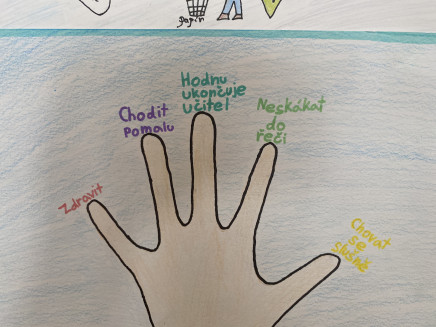 papír
Zdravit
Chodit
pomalu
Hodnu
ukončuje
učitel
Neskákat
do
řeči
Chovat
se
slušně